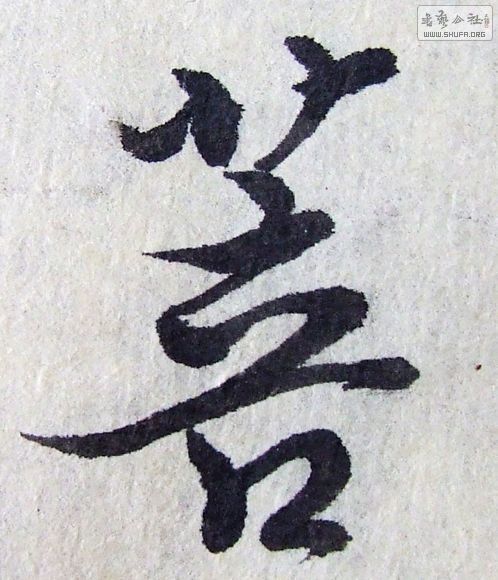 書藝公社
WWW.SHUFA.ORG
菩